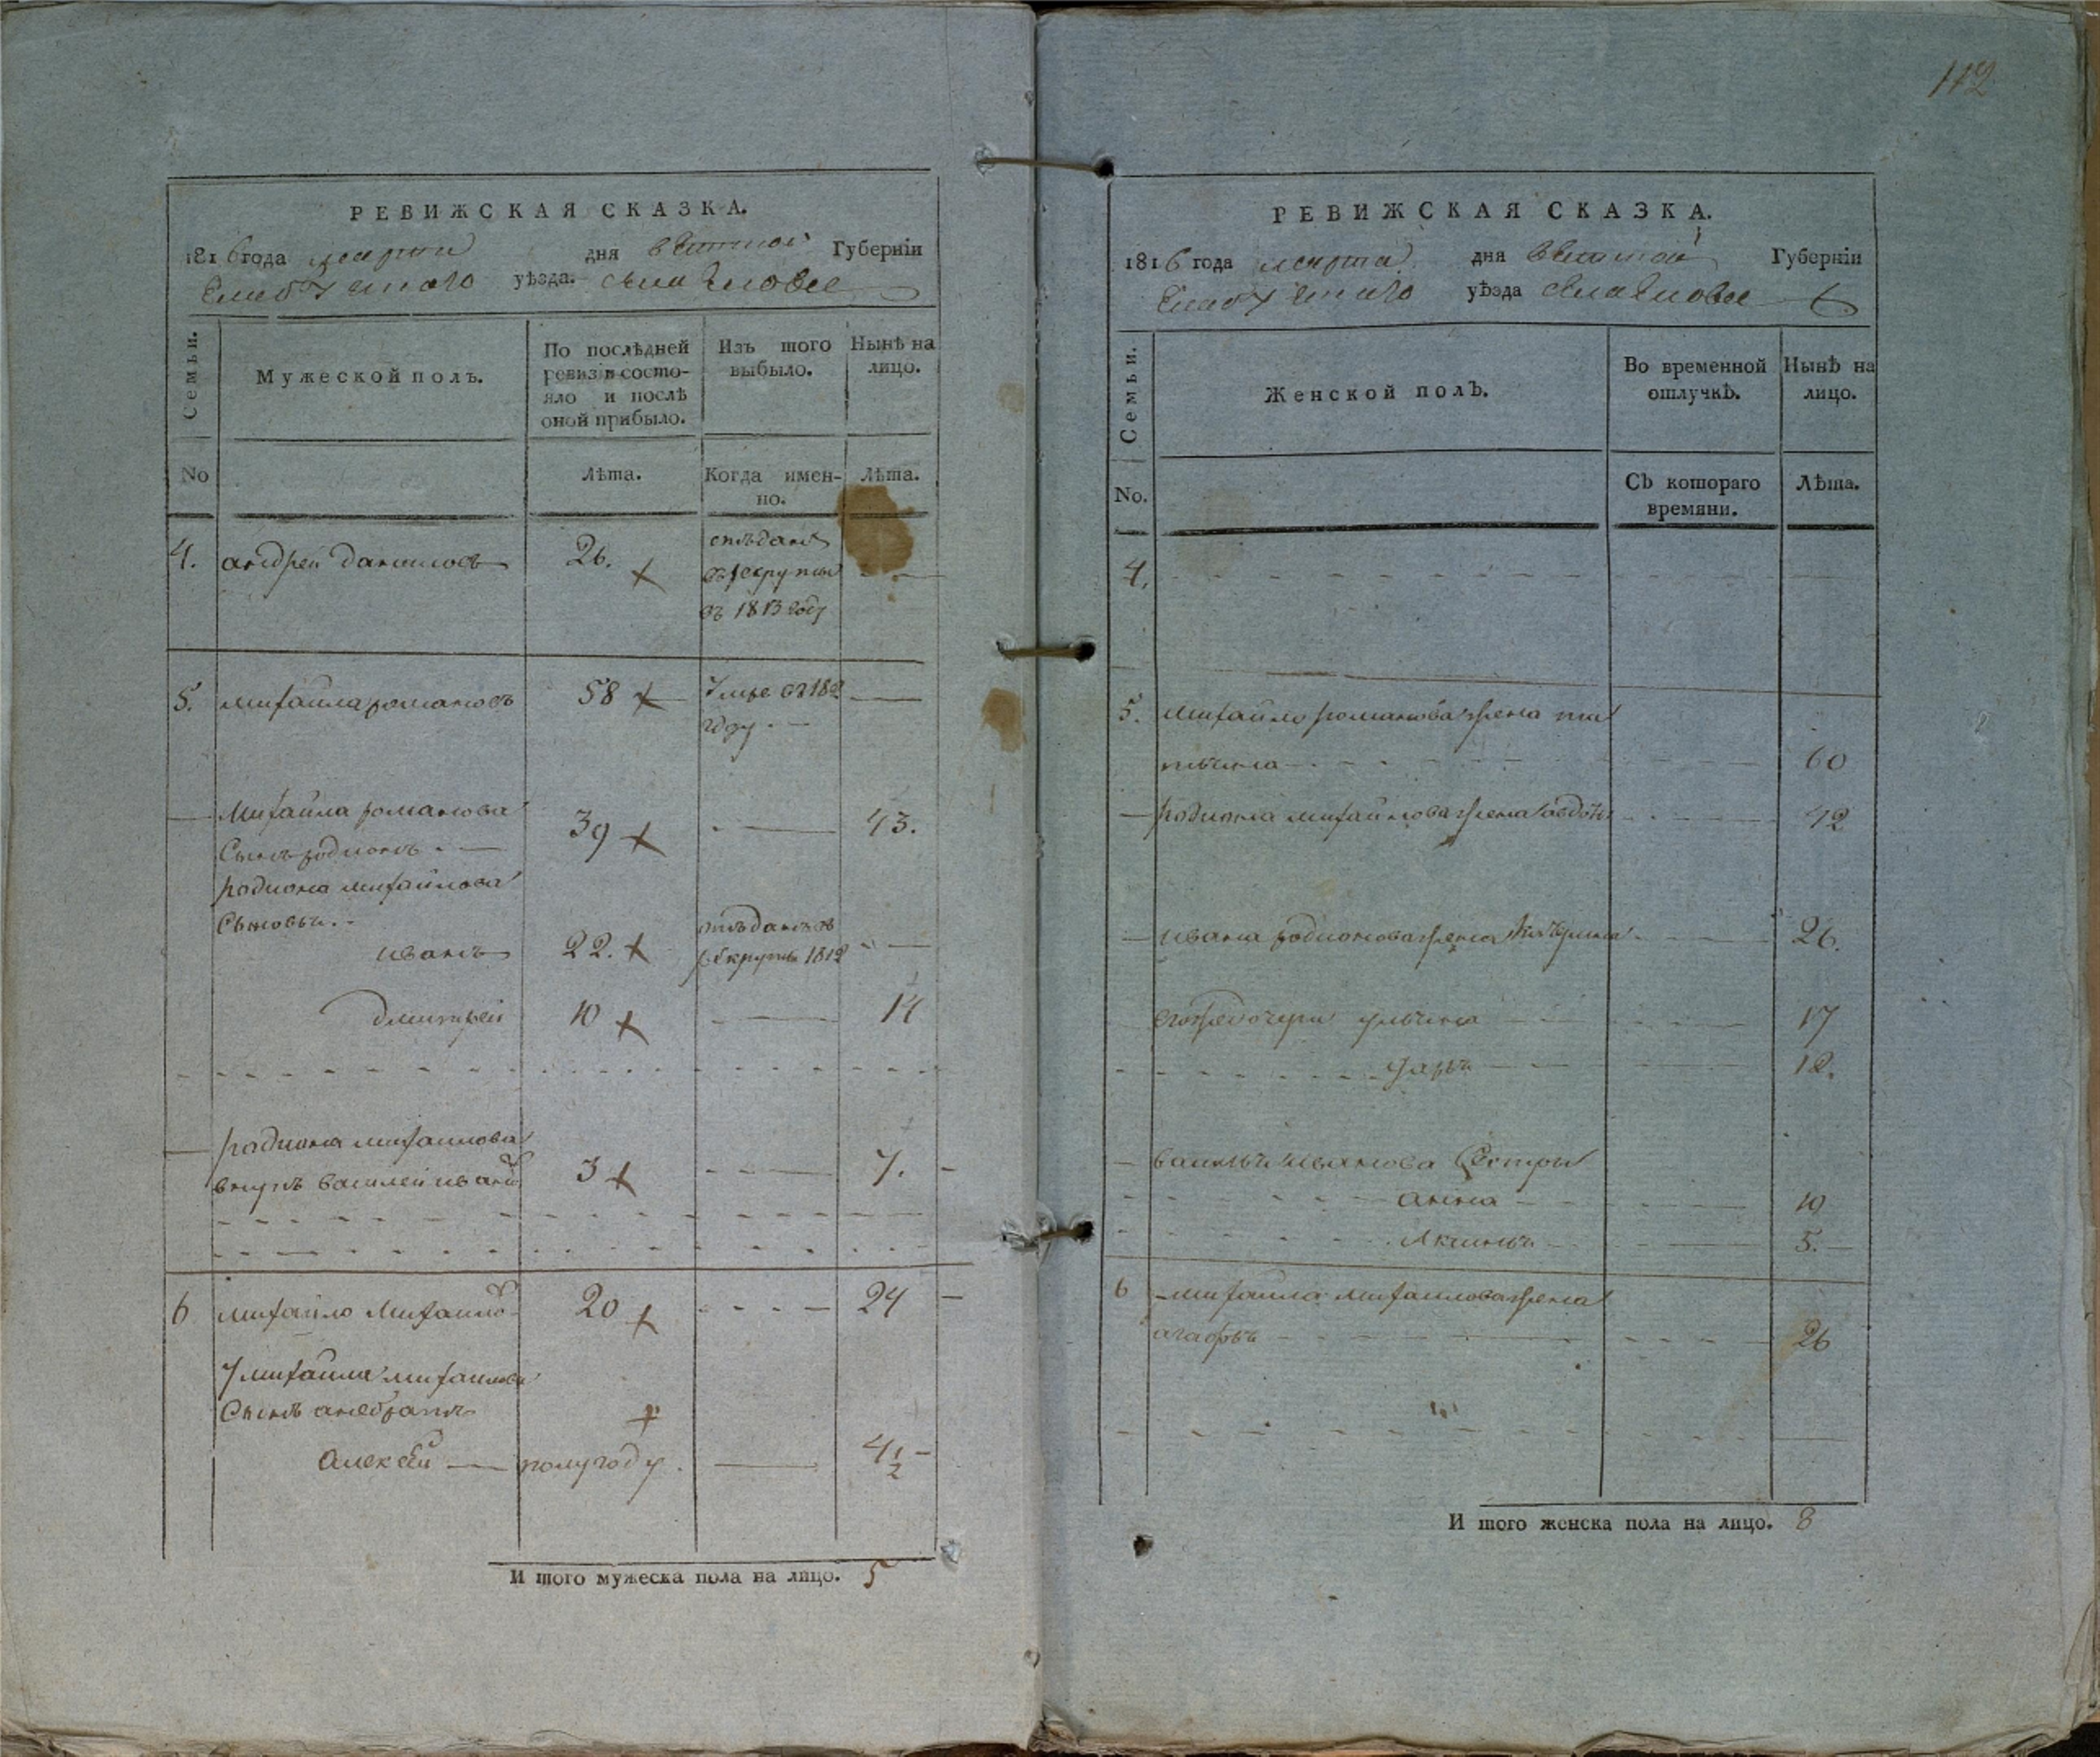 РЕВИЖСКАЯ СКАЗКА.
1816 года марта дня вятской Губерніи
Елабужскаго уѣзда.
Семьи.
Мужеской полъ.
По послѣдней ревизіи состояло и послѣ оной прибыло.
Изъ того выбыло.
Нынѣ на лицо.
No
Лѣта.
Когда именно.
Лѣта.
4. андрей даниловъ 26. отъданъ
въ рекруты
въ 1813 году
5. михайла романовъ 58 умре въ 18
году
Михайла романова
Сынъ родионъ 39 43.
родиона михайлова
Сыновьи
иванъ 22. отъданъ въ
рекруты 1812
дмитрей 10 14
родиона михаилова
внукъ василей иванов 3 7.
6 михайло михаило 20 24
У михаила михаилова
Сынъ
алексей полугоду 4 1/2
И того мужеска пола на лицо. 5
112
РЕВИЖСКАЯ СКАЗКА.
1816 года марта дня вятской Губерніи
Елабужскаго уѣзда
Семьи.
Женской полъ.
Во временной отлучкѣ.
Нынѣ на лицо.
No.
Съ котораго времяни.
Лѣта.
4.
5. михайло романова жена та
тьяна 60
родиона михайлова жена авдотья 42
ивана родионова жена катерина 26.
его же дочери ульяна 17
дарья 12.
василья иванова Сестры
анна 10
Акилина 5.
6 михаила михаилова жена
агафья 26
И того женска пола на лицо. 8